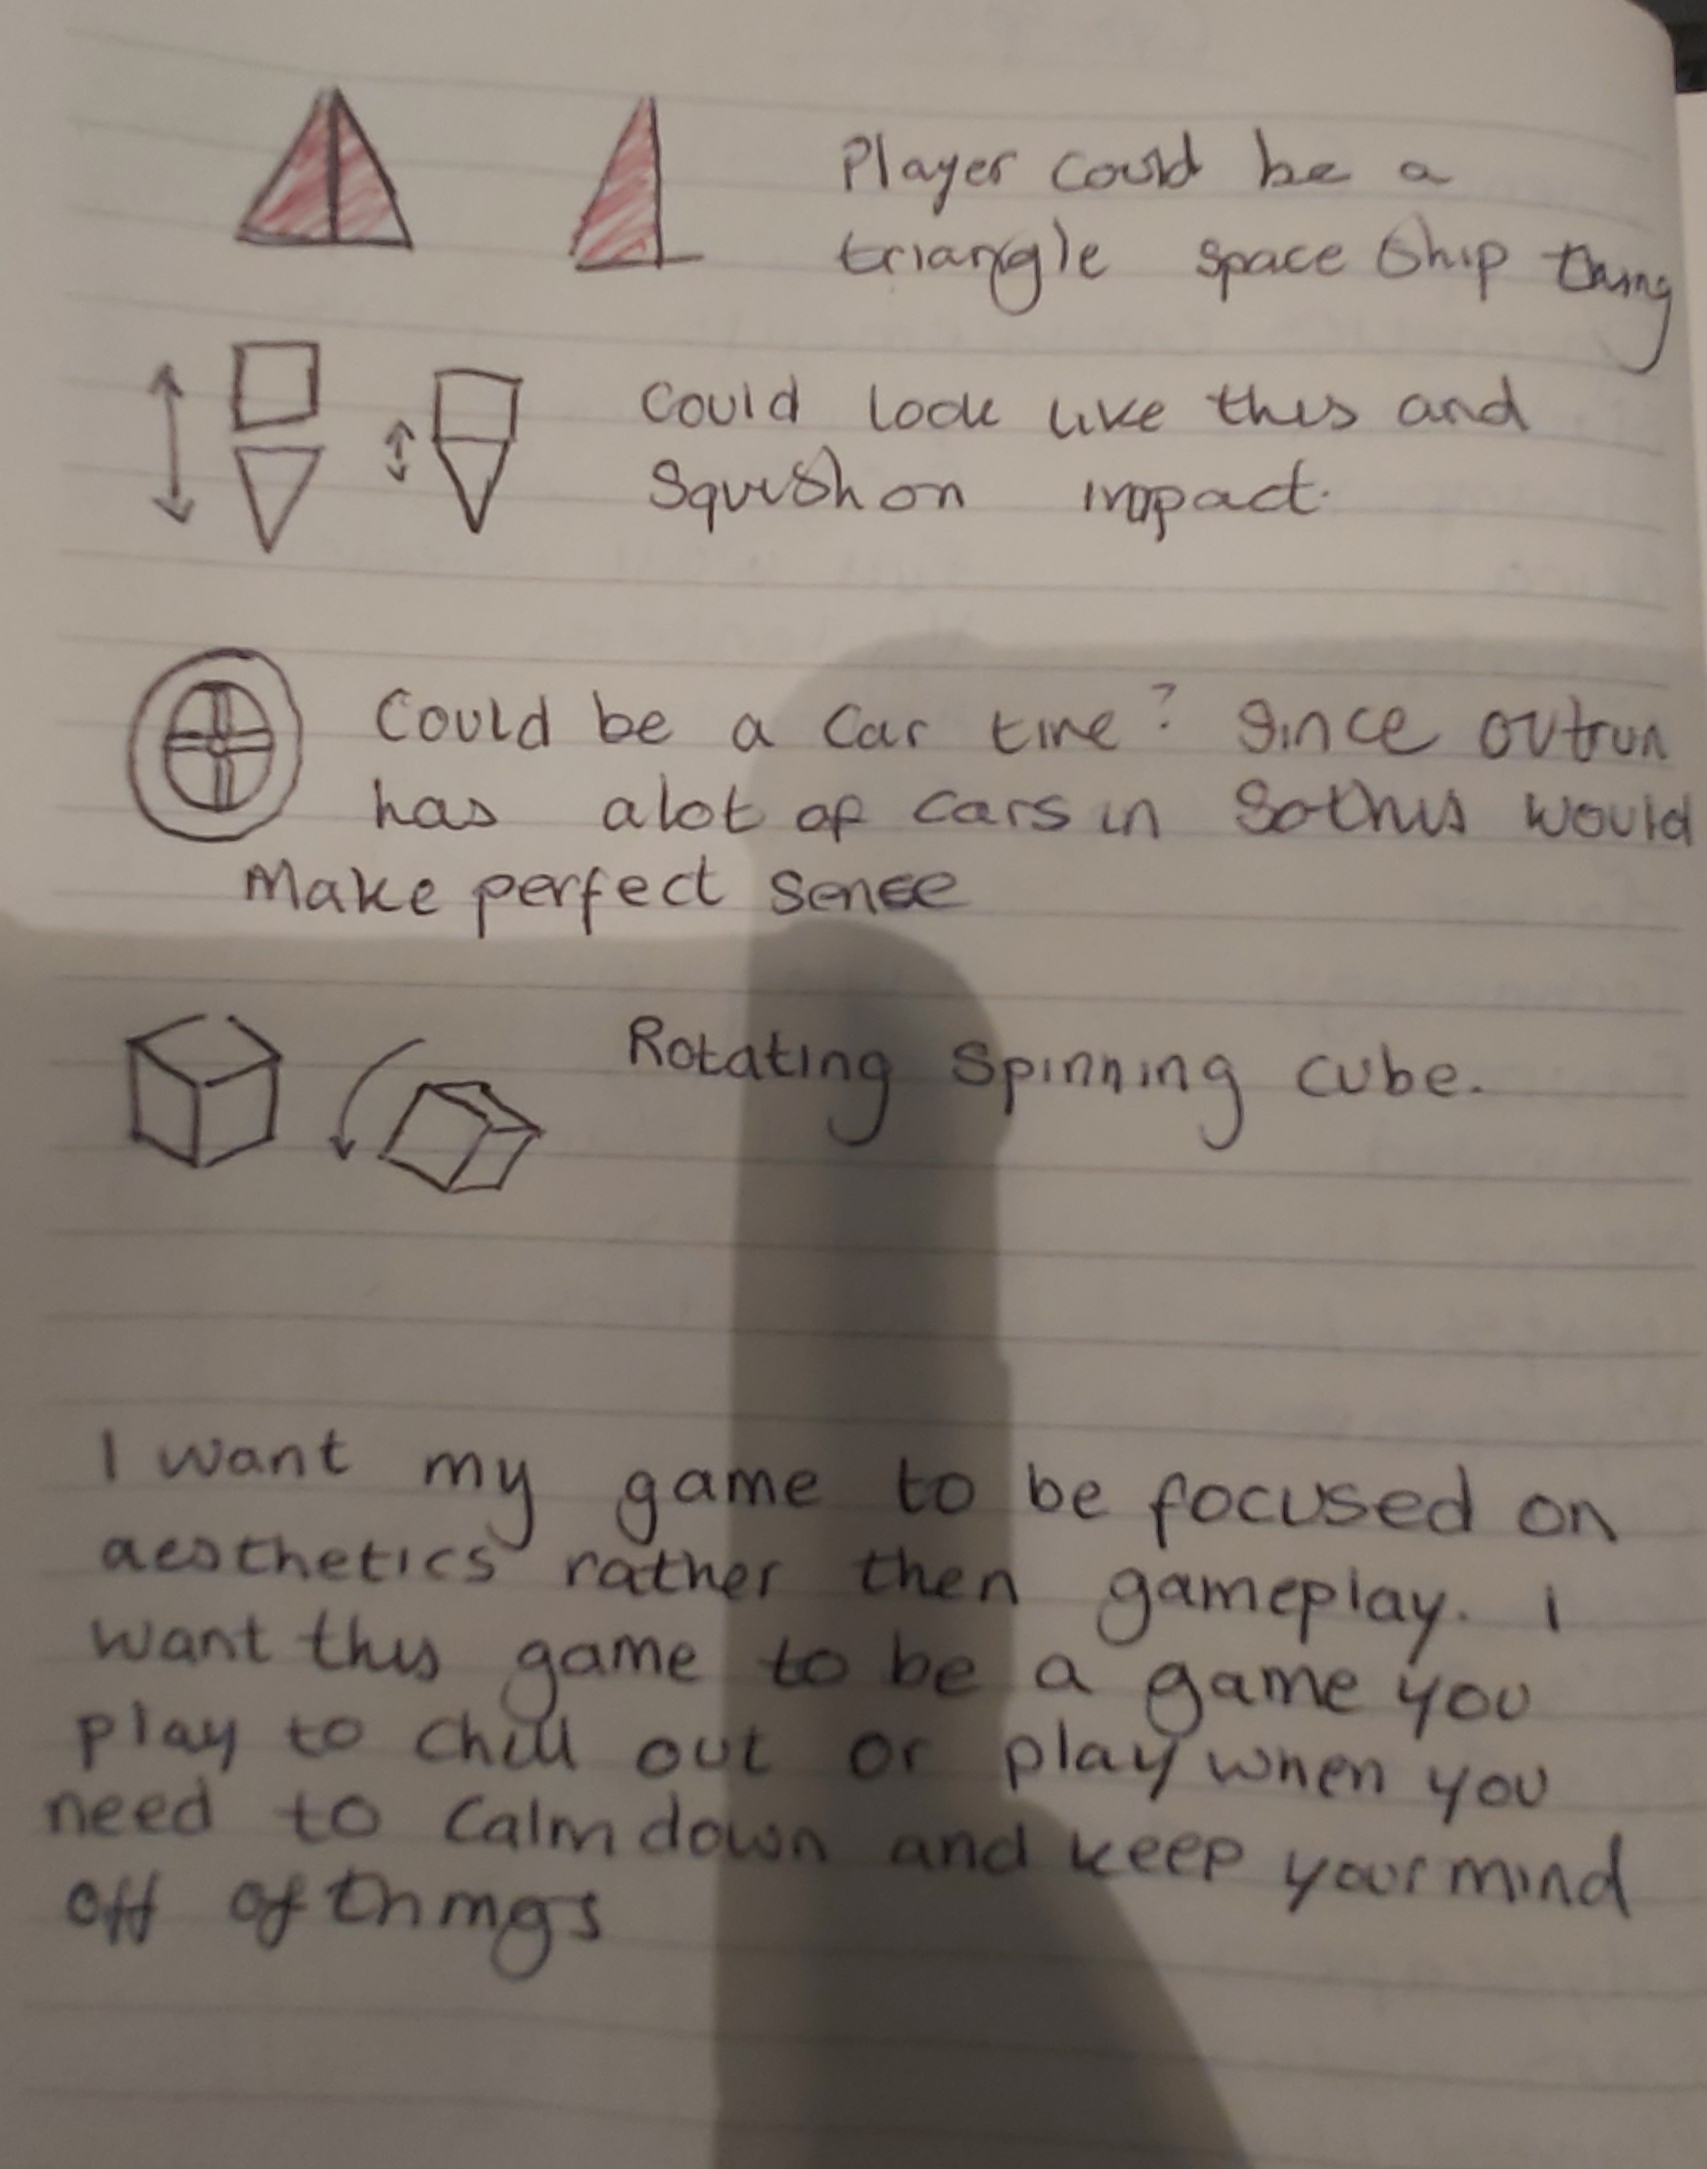 Player could be a
triangle space ship thing
Could look like this and
Squish on impact.
Could be a car tire? Since outrun
has alot of cars in So this would
Make perfect sense
Rotating spinning cube.
I want my game to be focused on
aesthetics rather then gameplay. I
want this game to be a game you
play to chill out or play when you
need to calm down and keep your mind
off of things